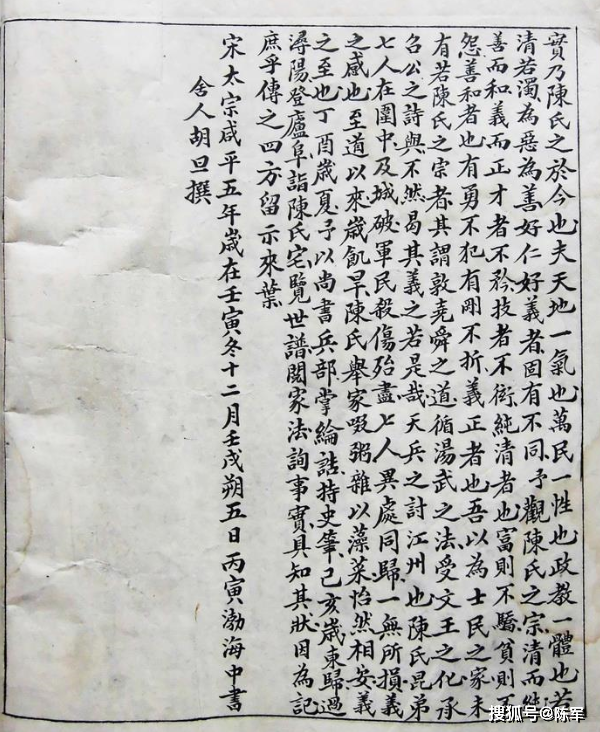 實乃陳氏之於今也夫天地一氣也萬民一性也政教一體也若
清若濁為惡為善好仁好義者固有不同予觀陳氏之宗清而能
善而和義而正才者不矜技者不衒純清者也富則不驕貧則不
怨善和者也有勇不犯有剛不折義正者也吾以為士民之家未
有若陳氏之宗者其謂敦堯舜之道循湯武之法受文王之化承
召公之詩與不然曷其義之若是哉天兵之討江州也陳氏昆弟
七人在圍中及城破軍民殺傷殆盡七人異處同歸一無所損義
之感也至道以來歲飢旱陳氏舉家啜粥雜以藻菜怡然相安義
之至也丁酉歲夏予以尚書兵部掌綸誥持史筆己亥歲東歸過
潯陽登廬阜詣陳氏宅覽世譜閱家法詢事實具知其狀因為記
庶乎傳之四方留示來葉
宋太宗咸平五年歲在壬寅冬十二月壬戌朔五日丙寅渤海中書
舍人胡旦撰
搜狐号@陈军